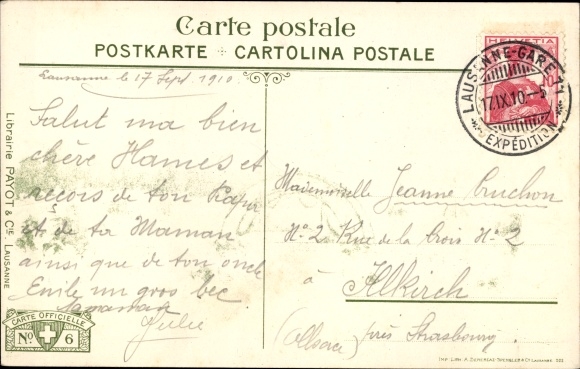 Carte postale
POSTKARTE ✣ CARTOLINA POSTALE
Lausanne le 17 Sept. 1910
Salut ma bien
chère Hames et
reçois de ton Papa
et de ta Maman
ainsi que de ton oncle
Emile un gros bec
Julie
HELVETIA
LAUSANNE-GARE
17.IX.10.-5
EXPÉDITION
Mademoiselle Jeanne Cuchon
No. 2. Rue de la Croix No. 2
à Altkirch
(Alsace) près Strasbourg.
Librairie PAYOT & Cie. LAUSANNE
CARTE OFFICIELLE
No. 6